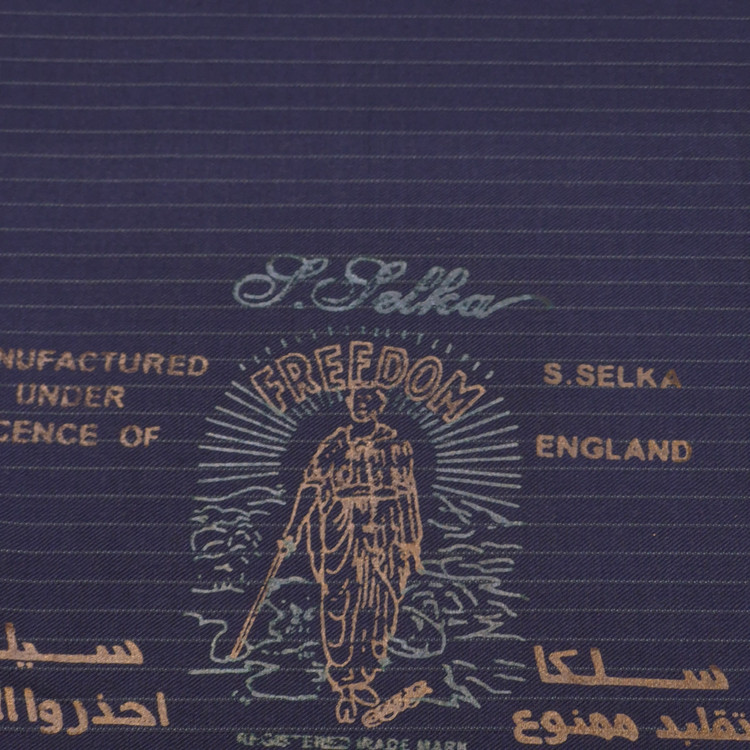 S. Selka
FREEDOM
NUFACTURED
UNDER
CENCE OF
S.SELKA
ENGLAND
احذروا
سلكا
تقليد ممنوع
REGISTERED TRADE MARK